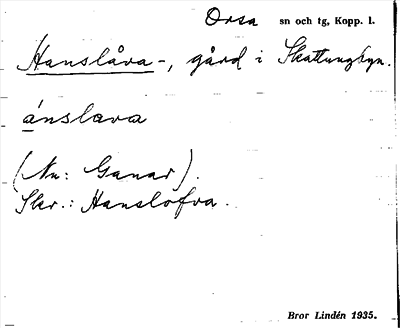 Orsa sn och tg, Kopp. l.
Hanslåva-, gård i Skattungbyn.
ánslava
(Nu: Ganar).
Skr.: Hanslofva.
Bror Lindén 1935.